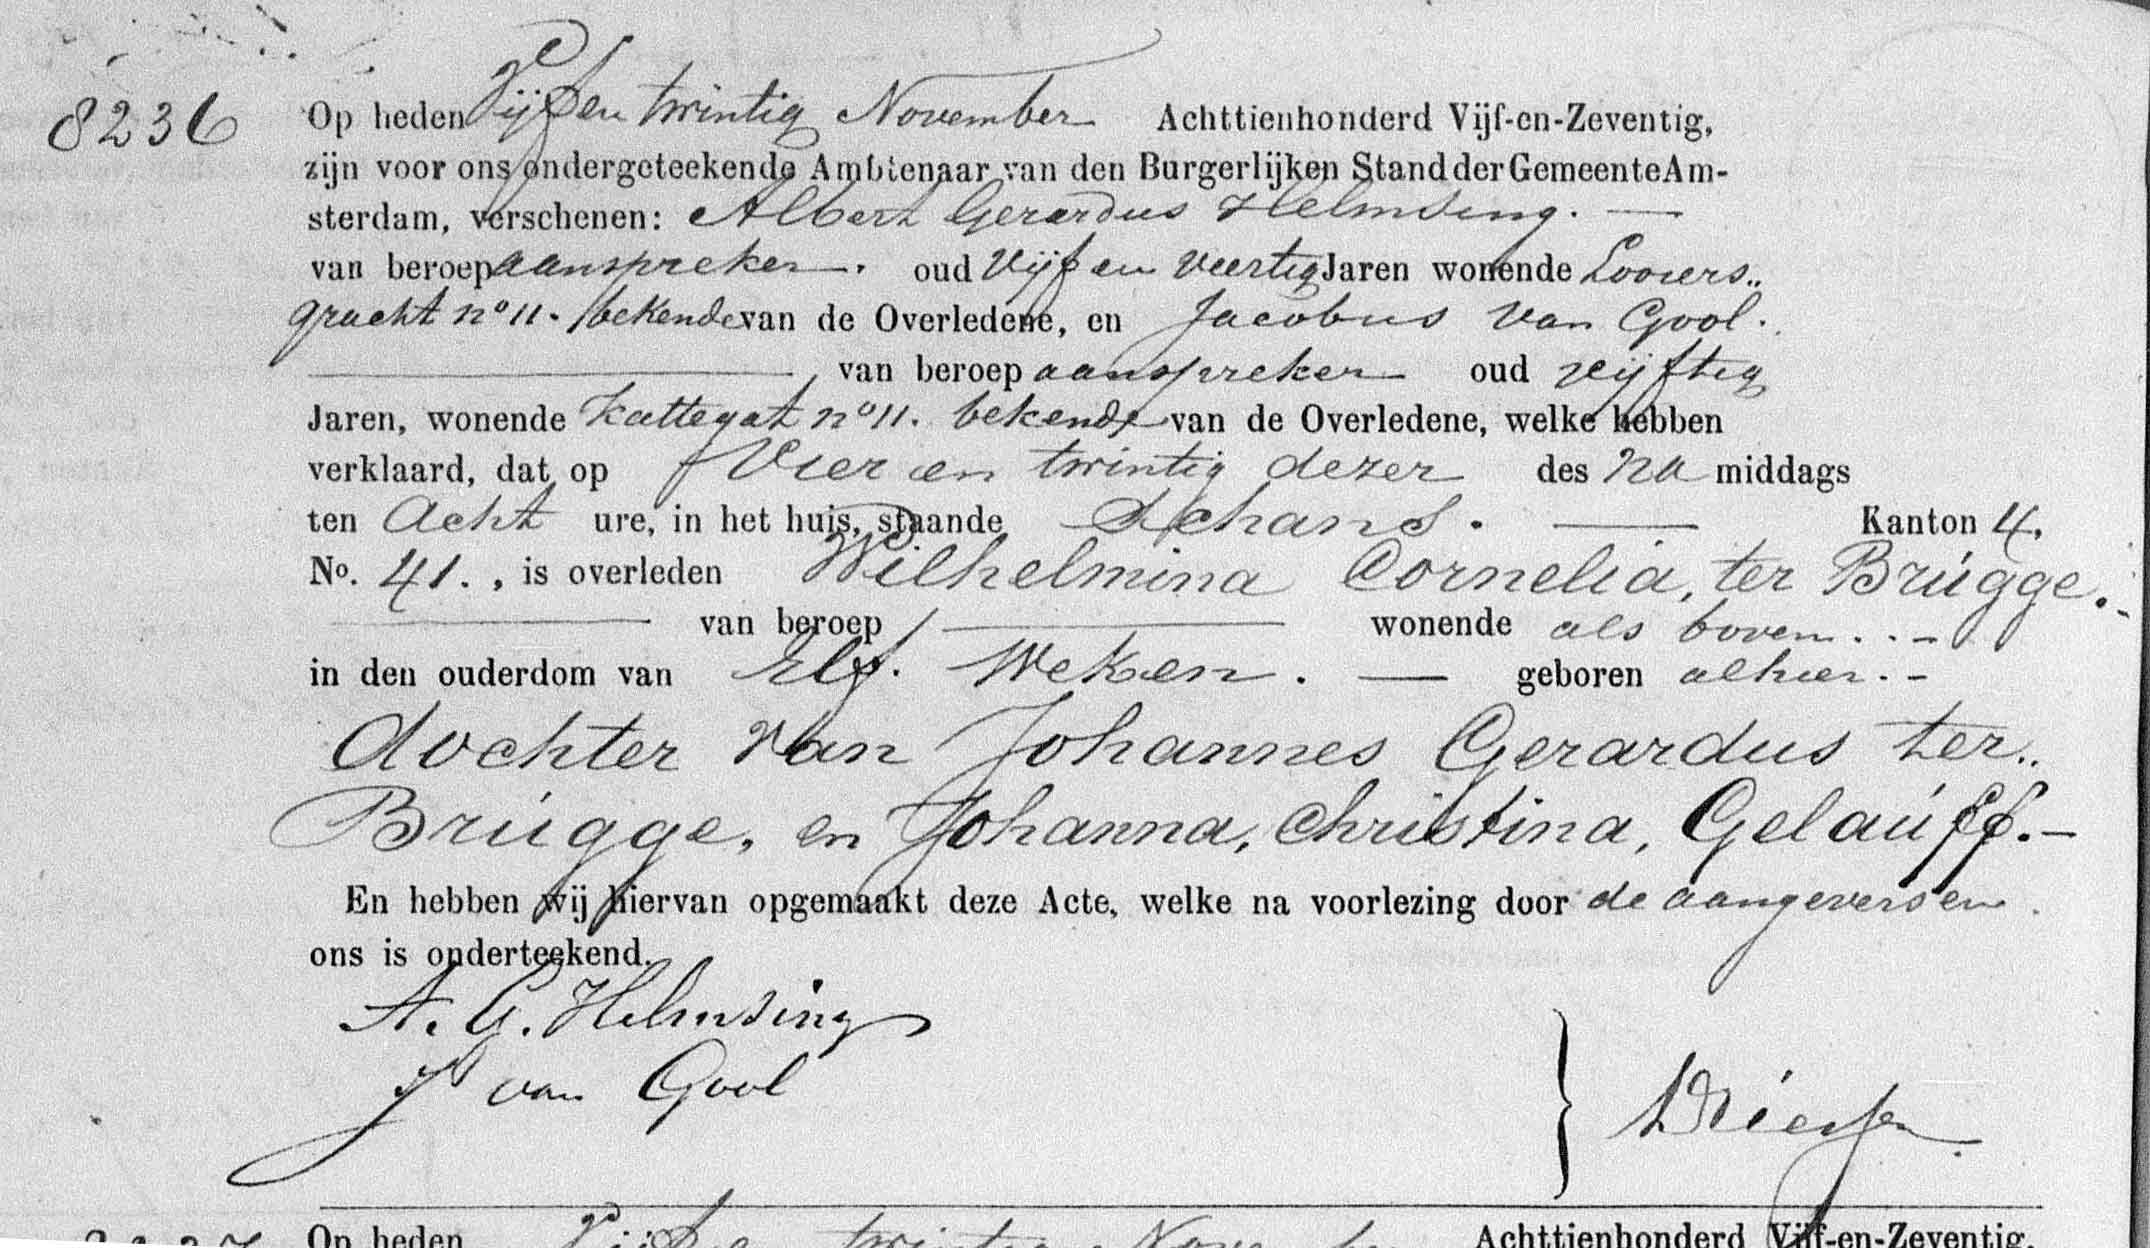 8236
Op heden Vijf en twintig November Achttienhonderd Vijf-en-Zeventig,
zijn voor ons ondergeteekende Ambtenaar van den Burgerlijken Stand der Gemeente Am-
sterdam, verschenen: Albert Gerardus Helmsing. —
van beroep aanspreker. oud Vijf en Veertig Jaren wonende Looiers„
gracht no 11. bekende van de Overledene, en Jacobus van Gool.
van beroep aanspreker oud vijftig
Jaren, wonende Kattegat no 11. bekende van de Overledene, welke hebben
verklaard, dat op Vier en twintig dezer des na middags
ten Acht ure, in het huis, staande Schans. — Kanton 4,
No. 41., is overleden Wilhelmina Cornelia, ter Brúgge.-
van beroep — wonende als boven..-
in den ouderdom van Elf. Weken. — geboren alhier.-
dochter van Johannes Gerardus ter„
Brúgge, en Johanna, Christina, Gelaúff.-
En hebben wij hiervan opgemaakt deze Acte, welke na voorlezing door de aangevers en
ons is onderteekend.
A. G. Helmsing
J van Gool
Op heden Vijf en twintig Achttienhonderd Vijf-en-Zeventig,